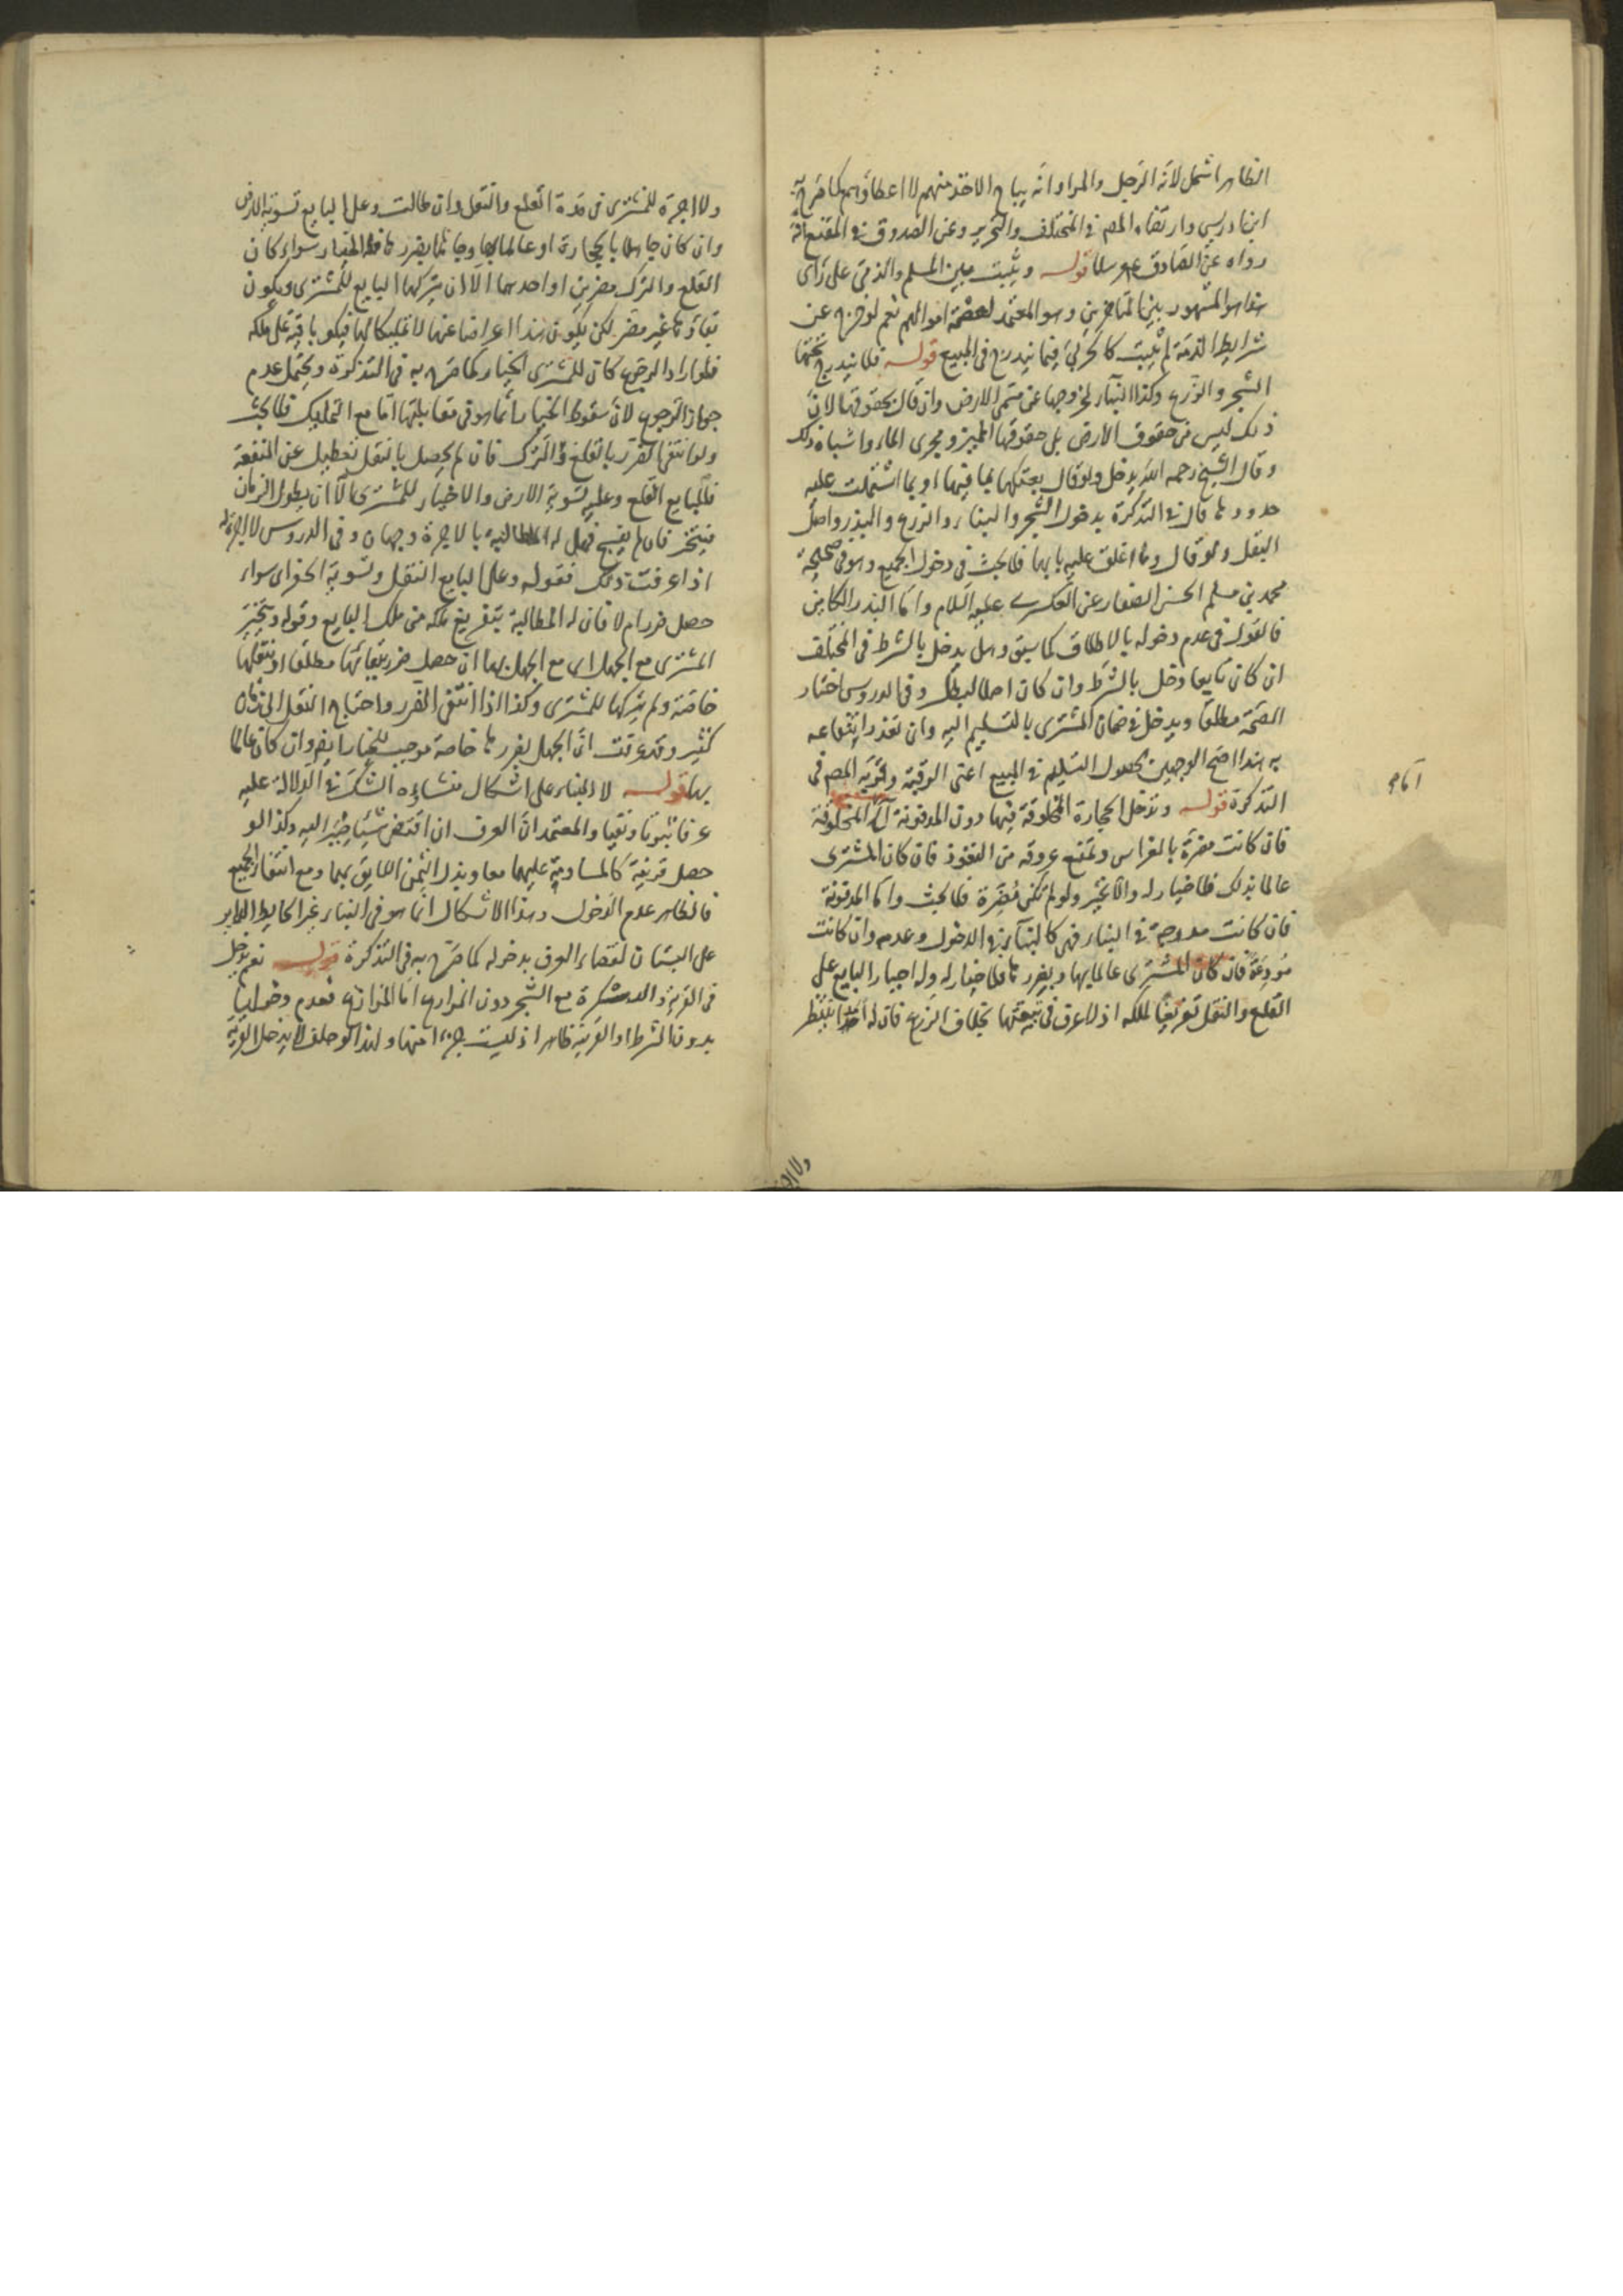 الظاهر اشمل لانه الرجل والمراد انه يباح الاخذ منهم لا اعطاؤهم كما صرح به
ابن ادريس وارتضاه المص في المختلف والتحرير وعن الصدوق في المقنع انه
رواه عن الصادق عم مرسلا قوله ويثبت بين المسلم والذمى على راى
هذا هو المشهور بين المتاخرين وهو المعتمد لعصمة اموالهم نعم لو خرج عن
شرايط الذمة لم يثبت كالحربي فيما يندرج في المبيع قوله فلا يندرج تحتها
الشجر والزرع وكذا البناء لخروجها عن مسمى الارض وان قال بحقوقها لان
ذلك ليس من حقوق الارض بل حقوقها الممر ومجرى الماء واشباه ذلك
وقال الشيخ رحمه الله يدخل ولو قال بعتكها بما فيها او بما اشتملت عليه
حدودها قال في التذكرة يدخول الشجر والبناء والزرع والبذر واصل
البقل ولو قال وما اغلق عليه بابها فلا بحث في دخول الجميع وهو في صحيحة
محمد بن مسلم الحسن الصفار عن العسكرى عليه السلام واما البذر الكامن
فالقول في عدم دخوله بالاطلاق كما سبق وهل يدخل بالشرط في المختلف
ان كان تابعا دخل بالشرط وان كان اصلا بطل وفي الدروس اختار
الصحة مطلقا ويدخل في ضمان المشترى بالتسليم اليه وان تعذر انتفاعه
به هذا اصح الوجهين لحصول التسليم في المبيع اعنى الرقبة وقربه المص في
التذكرة قوله وتدخل الحجارة المخلوقة فيها دون المدفونة اما المخلوقة
فان كانت مضرة بالغراس وتمنع عروقه من النفوذ فان كان المشترى
عالما بذلك فلا خيار له والا تخير ولو لم تكن مضرة فلا بحث واما المدفونة
فان كانت مدرجة في البناء فهى كالبناء في الدخول وعدمه وان كانت
مودعة فان كان المشترى عالما بها وبضررها فلا خيار له وله اجبار البايع على
القلع والنقل تفريغا لملكه اذ لا عرف في تبقيتها بخلاف الزرع فان له امدا ينتظر
ولا اجرة للمشترى في مدة القلع والنقل وان طالت وعلى البايع تسوية الارض
وان كان جاهلا بالحجارة او عالما بها وجاهلا بضررها فله الخيار سواء كان
القلع والترك مضرين او احدهما الا ان يتركها البايع للمشترى ويكون
بقاؤها غير مضر لكن يكون هذا اعراضا عنها لا تمليكا لها فيكون باقية على ملكه
فلو اراد الرجوع كان للمشترى الخيار كما صرح به في التذكرة ويحتمل عدم
جواز الرجوع لان سقوط الخيار انما هو في مقابلتها اما مع التمليك فلا بحث
ولو انتفى الضرر بالقلع والترك فان لم يحصل بالنقل تعطيل عن المنفعة
فللبايع القلع وعليه تسوية الارض ولا خيار للمشترى الا ان يطول الزمان
فيتخير فان لم يفسخ فهل له المطالبة بالاجرة وجهان وفي الدروس لا اجرة له
اذا عرفت ذلك فقوله وعلى البايع النقل وتسوية الحفر اى سواء
حصل ضرر ام لا فان له المطالبة بتفريغ ملكه من ملك البايع وقوله ويتخير
المشترى مع الجهل اى مع الجهل بها ان حصل ضرر ببقائها مطلقا او بنقلها
خاصة ولم يتركها للمشترى وكذا اذا انتفى الضرر واحتاج النقل الى زمان
كثير وقد عرفت ان الجهل بضررها خاصة موجب للخيار ايضا وان كان عالما
بها قوله لا البناء على اشكال منشاؤه الشك في الدلالة عليه
عرفا ثبوتا ونفيا والمعتمد ان العرف ان اقتضى شيئا صير اليه وكذا لو
حصل قرينة كالمساومة عليهما معا وبذل الثمن اللايق بهما ومع انتفاء الجميع
فالظاهر عدم الدخول وهذا الاشكال انما هو في البناء غير الحايط الداير
على البستان لقضاء العرف بدخوله كما صرح به في التذكرة قوله نعم يدخل
في القرية والدسكرة مع الشجر دون المزارع اما المزارع فعدم دخولها
بدون الشرط او القرينة ظاهر اذ ليست جزءا منها ولهذا لو حلف لا يدخل القرية
ولا اجرة